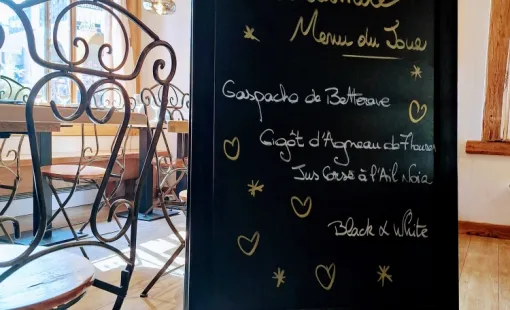 Menu du Jour
Gaspacho de Betterave
Gigôt d'Agneau de 7 heures
Jus Corsé à l'Ail Noir
Black & White